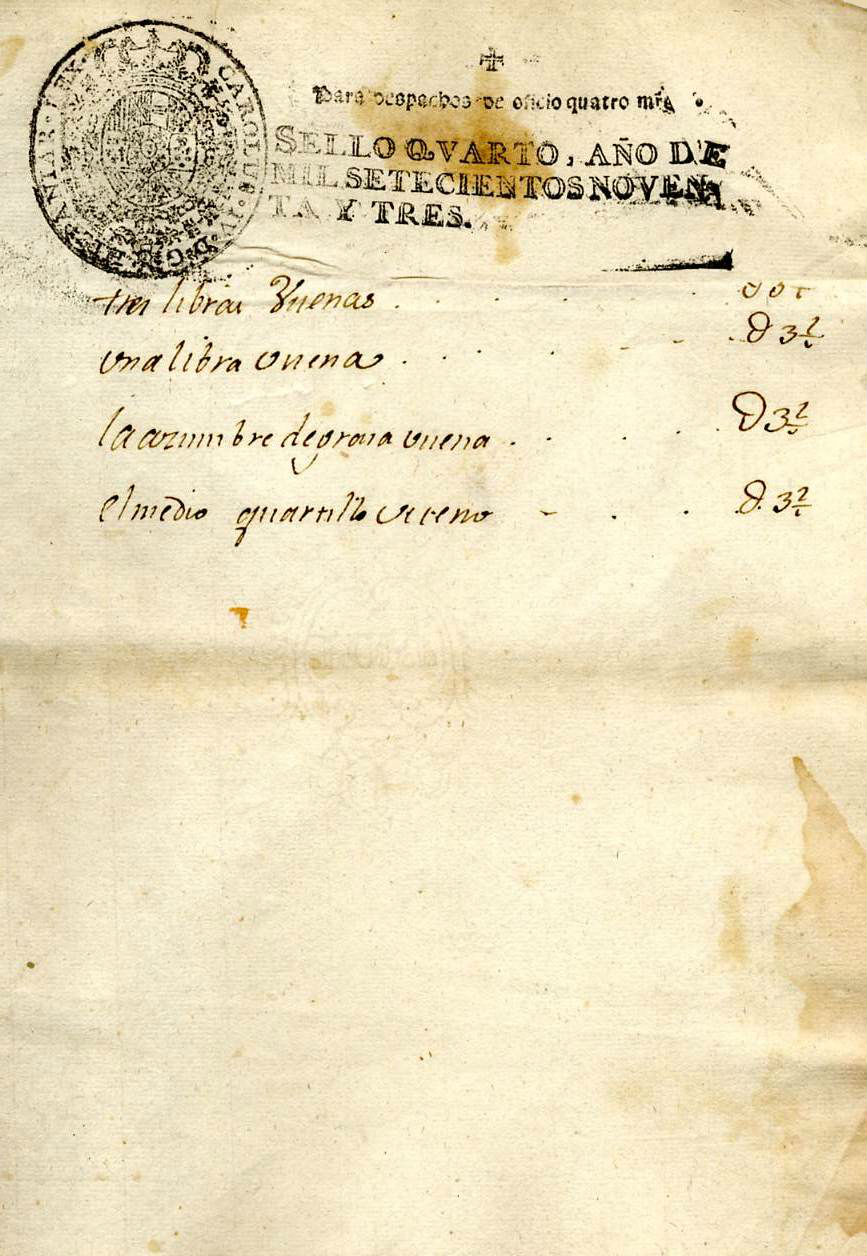 CAROLUS IV D G HISPANIAR REX
Para despachos de oficio quatro mrs
SELLO QVARTO, AÑO DE
MIL SETECIENTOS NOVEN
TA Y TRES.
tres libras Vuenas
vna libra vuena
la azumbre de vuena
el medio quartillo